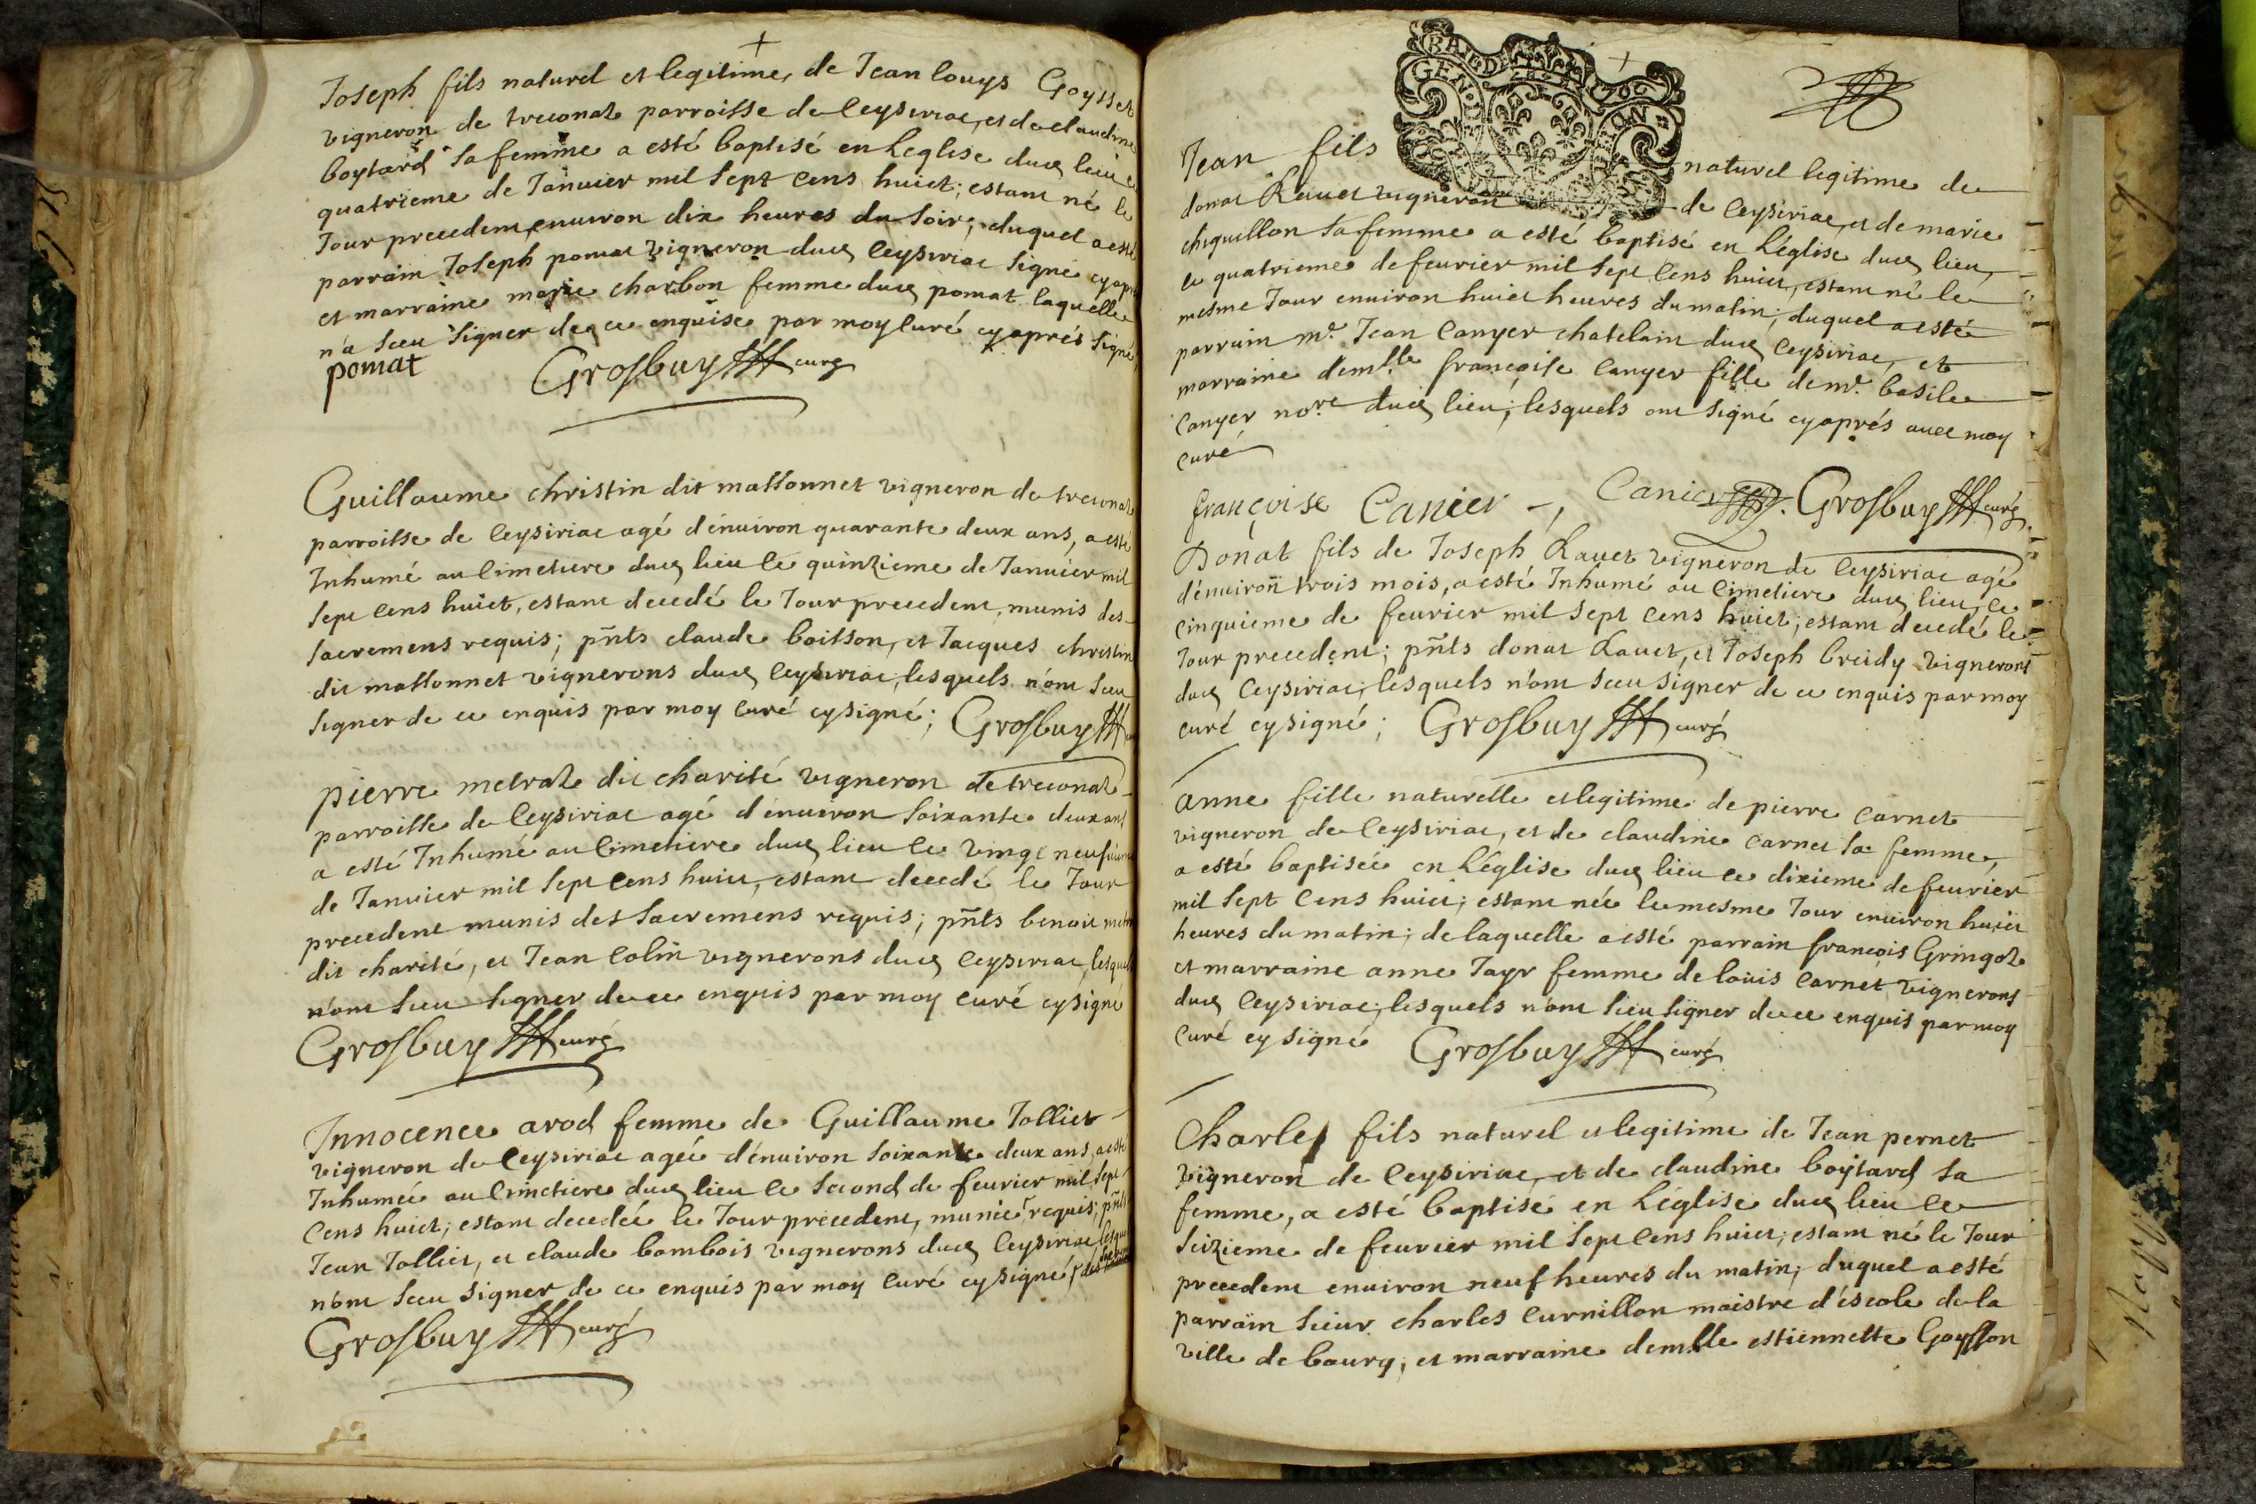 Joseph fils naturel et legitime, de Jean louys Goysset
vigneron de treconat parroisse de Ceysiriac, et de claudine
boytard sa femme a esté baptisé en Leglise dud lieu le
quatrieme de Janvier mil sept cens huict; estant né le
Jour precedent, environ dix heures du soir; duquel a esté
parrain Joseph pomat vigneron dud Ceysiriac signé cyaprés
et marraine marie charbon femme dud pomat laquelle
n'a sceu signer de ce enquise par moy Curé cyaprés signé
pomat Grosbuy curé
Guillaume christin dit massonnet vigneron de treconat
parroisse de Ceysiriac agé d'environ quarante deux ans, a esté
Inhumé au Cimetiere dud lieu le quinzieme de Janvier mil
sept cens huict, estant decedé le Jour precedent, munis des
sacremens requis; pñts claude boisson, et Jacques christin
dit massonnet vignerons dud Ceysiriac, lesquels n'ont sceu
signer de ce enquis par moy Curé cysigné; Grosbuy
pierre metrat dit charité vigneron de treconat
parroisse de Ceysiriac agé d'environ soixante deux ans
a esté Inhumé au Cimetiere dud lieu le vingt neufvieme
de Janvier mil sept cens huict, estant decedé le Jour
precedent munis des sacremens requis; pñts benoit
dit charité, et Jean Colin vignerons dud Ceysiriac, lesquels
n'ont sceu signer de ce enquis par moy curé cysigné
Grosbuy curé
Innocence arod femme de Guillaume Tolliet
vigneron de Ceysiriac agée d'environ soixante deux ans, a esté
Inhumée au Cimetiere dud lieu le second de fevrier mil sept
cens huict; estant decedée le Jour precedent, munie requis; pñts
Jean Tolliet, et claude bombois vignerons dud Ceysiriac lesquels
n'ont sceu signer de ce enquis par moy curé cysigné des
Grosbuy curé
Jean fils naturel legitime de
donat Ravet vigneron de Ceysiriac, et de marie
chiquillon sa femme a esté baptisé en L'église dud lieu,
le quatrieme de fevrier mil sept Cens huict, estant né le
mesme Jour environ huict heures du matin; duquel a esté
parrain mr. Jean Canyer chatelain dud Ceysiriac, et
marraine demlle françoise Canyer fille de mr. basile
Canyer nore dud lieu; lesquels ont signé cyaprés avec moy
curé
françoise Canier -, Canier Grosbuy curé
Donat fils de Joseph Ravet vigneron de Ceysiriac agé
d'environ trois mois, a esté Inhumé au Cimetiere dud lieu, le
cinquieme de fevrier mil sept cens huict; estant decedé le
Jour precedent; pñts donat Ravet, et Joseph breidy vignerons
dud Ceysiriac, lesquels n'ont sceu signer de ce enquis par moy
curé cysigné; Grosbuy curé
Anne fille naturelle et legitime de pierre Carnet
vigneron de Ceysiriac, et de claudine Carnet sa femme,
a esté baptisée en L'église dud lieu le dixieme de fevrier
mil sept Cens huict; estant née le mesme Jour environ huict
heures du matin; de laquelle a esté parrain françois Gringoz
et marraine anne Tayr femme de loüis Carnet vignerons
dud Ceysiriac; lesquels n'ont sceu signer de ce enquis par moy
curé cysigné Grosbuy curé
Charles fils naturel et legitime de Jean pernet
vigneron de Ceysiriac, et de claudine boytard sa
femme, a esté baptisé en L'église dud lieu le
seizieme de fevrier mil sept Cens huict; estant né le Jour
precedent environ neuf heures du matin; duquel a esté
parrain sieur charles Curnillon maistre d'éscole de la
ville de bourg; et marraine demlle estiennette Goysson